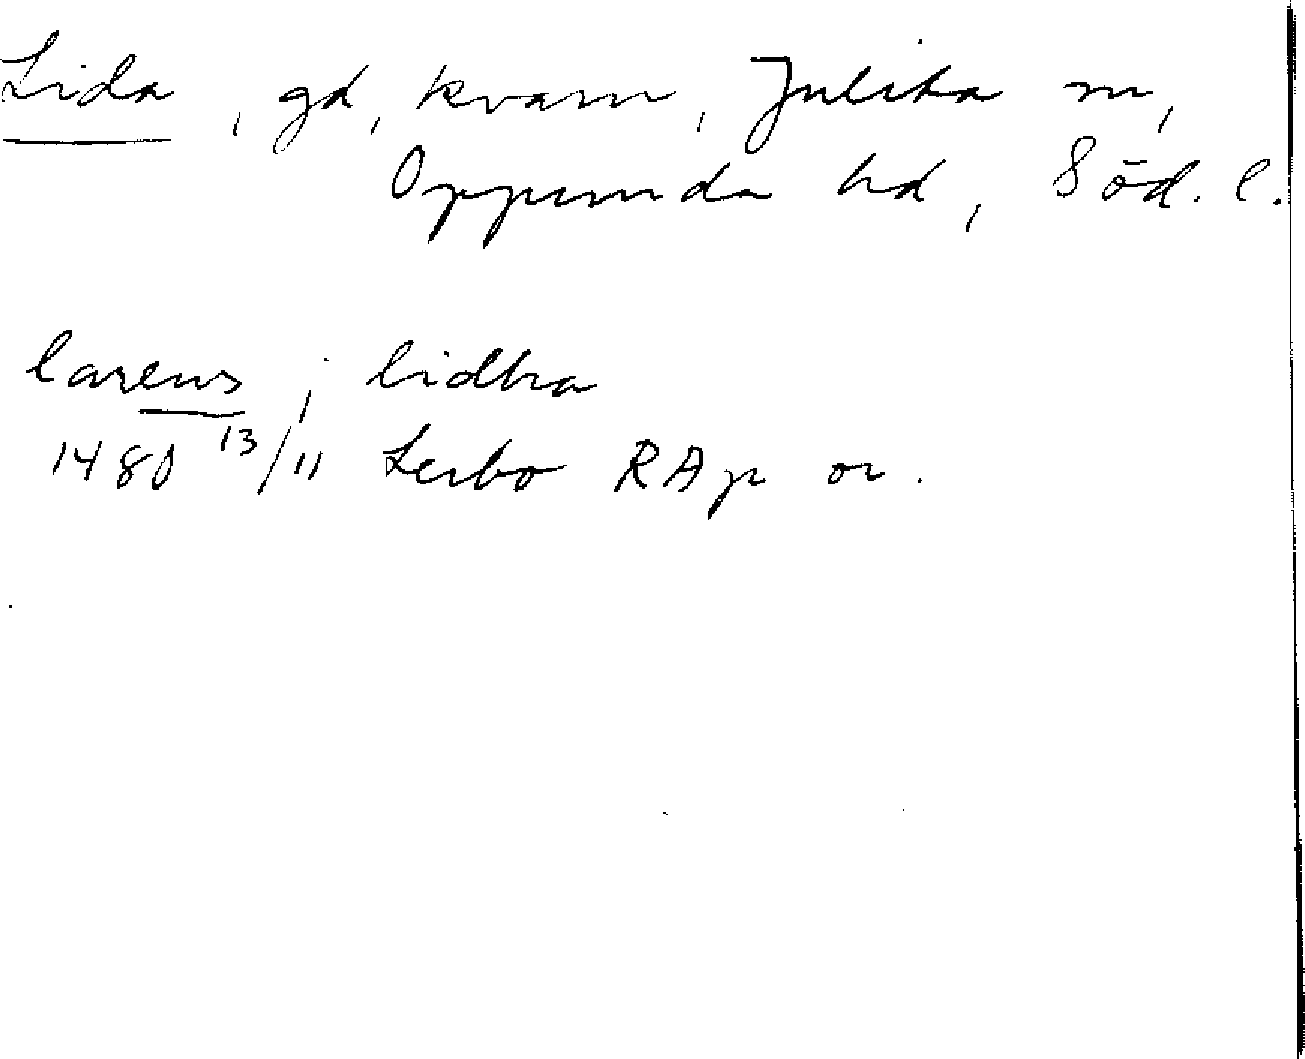 Lida, gd, kvarn, Julita sn,
Oppunda hd, Söd. l.
larens j lidhra
1480 13/11 Lerbo RAp or.